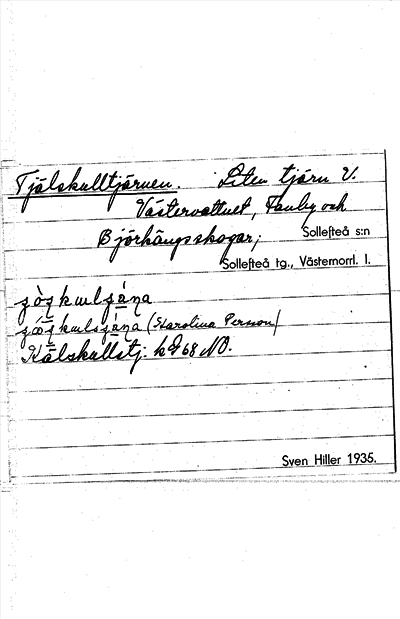 Tjälskulltjärnen. Liten tjärn V.
Västervattnet, Fanby och
Björkängsskogar;
Sollefteå s:n
Sollefteå tg., Västernorrl. l.
(Karolina Person)
Kälskullstj: kG 68 NO.
Sven Hiller 1935.